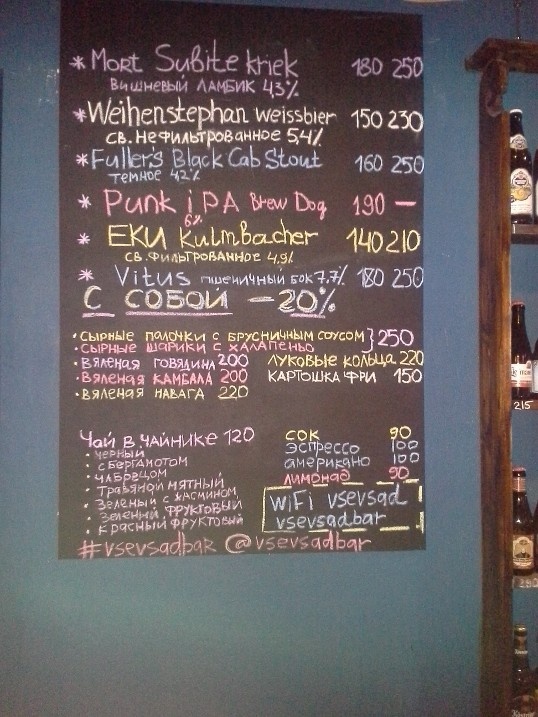 * Mort Subite kriek 180 250
вишневый ламбик 4,3%
* Weihenstephan weissbier 150 230
св. нефильтрованное 5,4%
* Fuller's Black Cab Stout 160 250
темное 4,2%
* Punk iPA Brew Dog 190 —
6%
* EKU Kulmbacher 140 210
св. фильтрованное 4,9%
* Vitus пшеничный бок 7,7% 180 250
С СОБОЙ -20%
· сырные палочки с брусничным соусом } 250
· сырные шарики с халапеньо
· вяленая говядина 200 луковые кольца 220
· вяленая камбала 200 картошка фри 150
· вяленая навага 220
Чай в чайнике 120
· черный
· с бергамотом
· чабрецом
· травяной мятный
· зеленый с жасмином
· зеленый фруктовый
· красный фруктовый
сок 90
эспрессо 100
американо 100
лимонад 90
WiFi vsevsad
vsevsadbar
#vsevsadbar @vsevsadbar
215